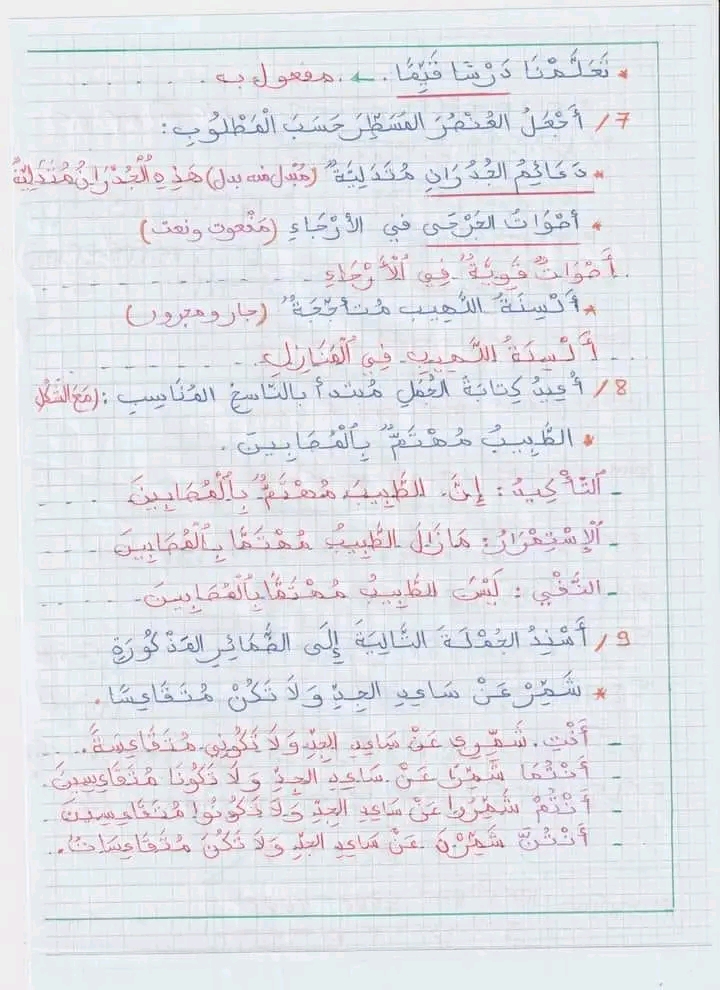 * تَعَلَّمْنَا دَرْسًا قَيِّمًا. ← مفعول به
7/ أَجْعَلُ العُنْصُرَ المُسَطَّرَ حَسَبَ الْمَطْلُوبِ:
* دَعَائِمُ الجُدْرَانِ مُتَدَلِيَّةٌ (مُبْدل منه بدل) هَذِهِ الْجُدْرَانُ مُتَدَلِيَّةٌ
* أَصْوَاتُ الجَرْحَى في الأَرْجَاءِ (مَنْعوت ونعت)
أَصْوَاتٌ قَوِيَّةٌ فِي الْأَرْجَاءِ
* أَلْسِنَةُ اللَّهِيبِ مُتَأَجِّجَةٌ (جار ومجرور)
أَلْسِنَةُ اللَّهِيبِ فِي الْمَنَازِلِ
8/ أُعِيدُ كِتَابَةَ الجُمَلِ مُبْتدأ بالنَّاسخِ المُنَاسِبِ: (مَعَ الشَّكْلِ
* الطَّبِيبُ مُهْتَمٌّ بِالْمُصَابِينَ.
- التَّأْكِيدُ: إِنَّ الطَّبِيبَ مُهْتَمٌّ بِالْمُصَابِينَ
- الْإِسْتِمْرَارُ: مَازَالَ الطَّبِيبُ مُهْتَمًّا بِالْمُصَابِينَ
- النَّفْيُ: لَيْسَ الطَّبِيبُ مُهْتَمًّا بِالْمُصَابِينَ
9/ أُسْنِدُ الجُمْلَةَ التَّالِيَةَ إِلَى الضَّمَائِرِ المَذْكُورَةِ
* شَمِّرْ عَنْ سَاعِدِ الجِدِّ وَلَا تَكُنْ مُتَقَاعِسًا.
- أَنْتِ شَمِّرِي عَنْ سَاعِدِ الجِدِّ وَلَا تَكُونِي مُتَقَاعِسَةً.
- أَنْتُمَا شَمِّرَا عَنْ سَاعِدِ الجِدِّ وَلَا تَكُونَا مُتَقَاعِسِينَ.
- أَنْتُمْ شَمِّرُوا عَنْ سَاعِدِ الجِدِّ وَلَا تَكُونُوا مُتَقَاعِسِينَ
- أَنْتُنَّ شَمِّرْنَ عَنْ سَاعِدِ الجِدِّ وَلَا تَكُنَّ مُتَقَاعِسَاتٌ.